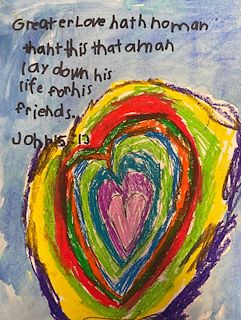 Greater Love hath no man
thant this that a man
lay down his
life for his
friends.
John 15:13